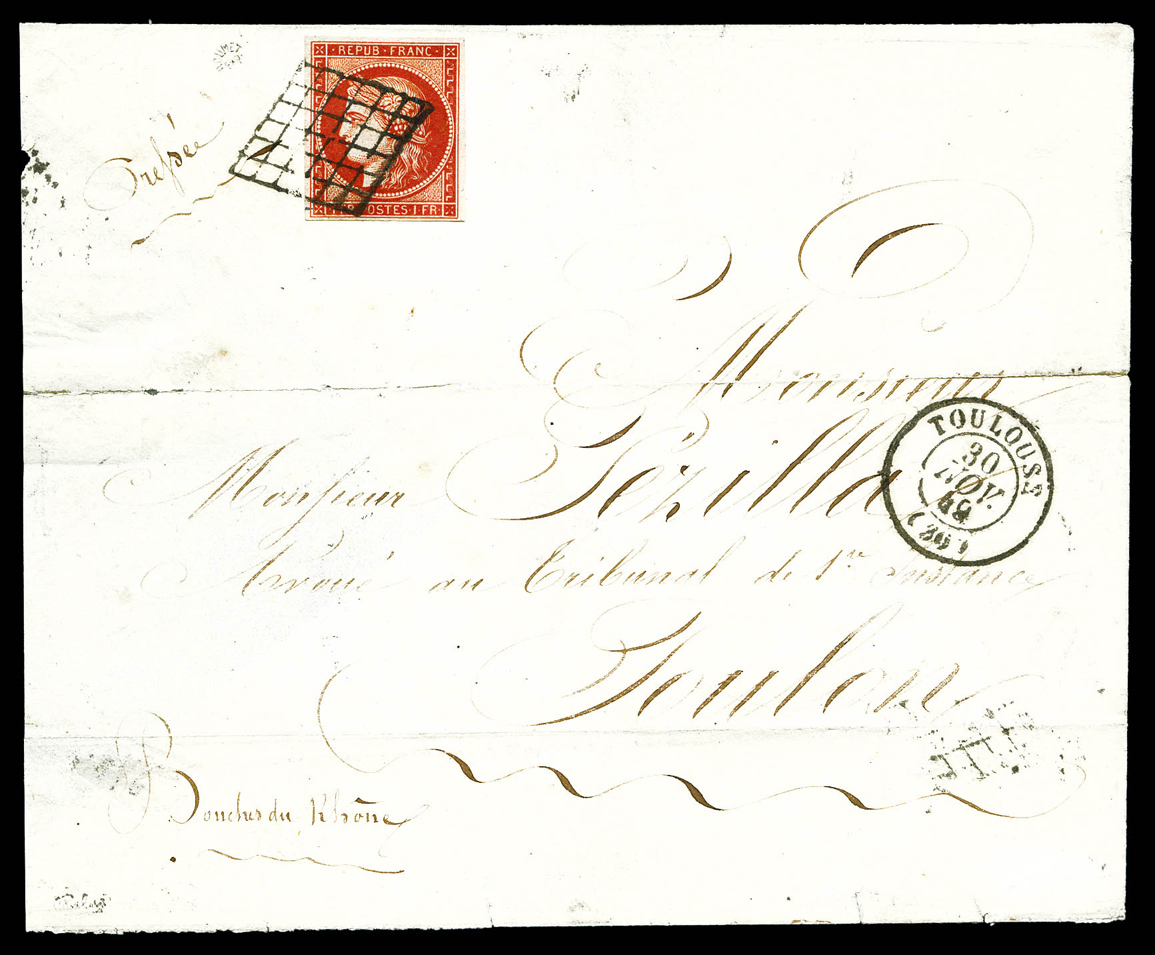 REPUB·FRANC·
POSTES·1·FR·
Pressée
Monsieur
Monsieur Pézilla
Avoué au Tribunal de 1re Instance
TOULOUSE
30
NOV.
49
(30)
Toulon
Bouches du Rhône